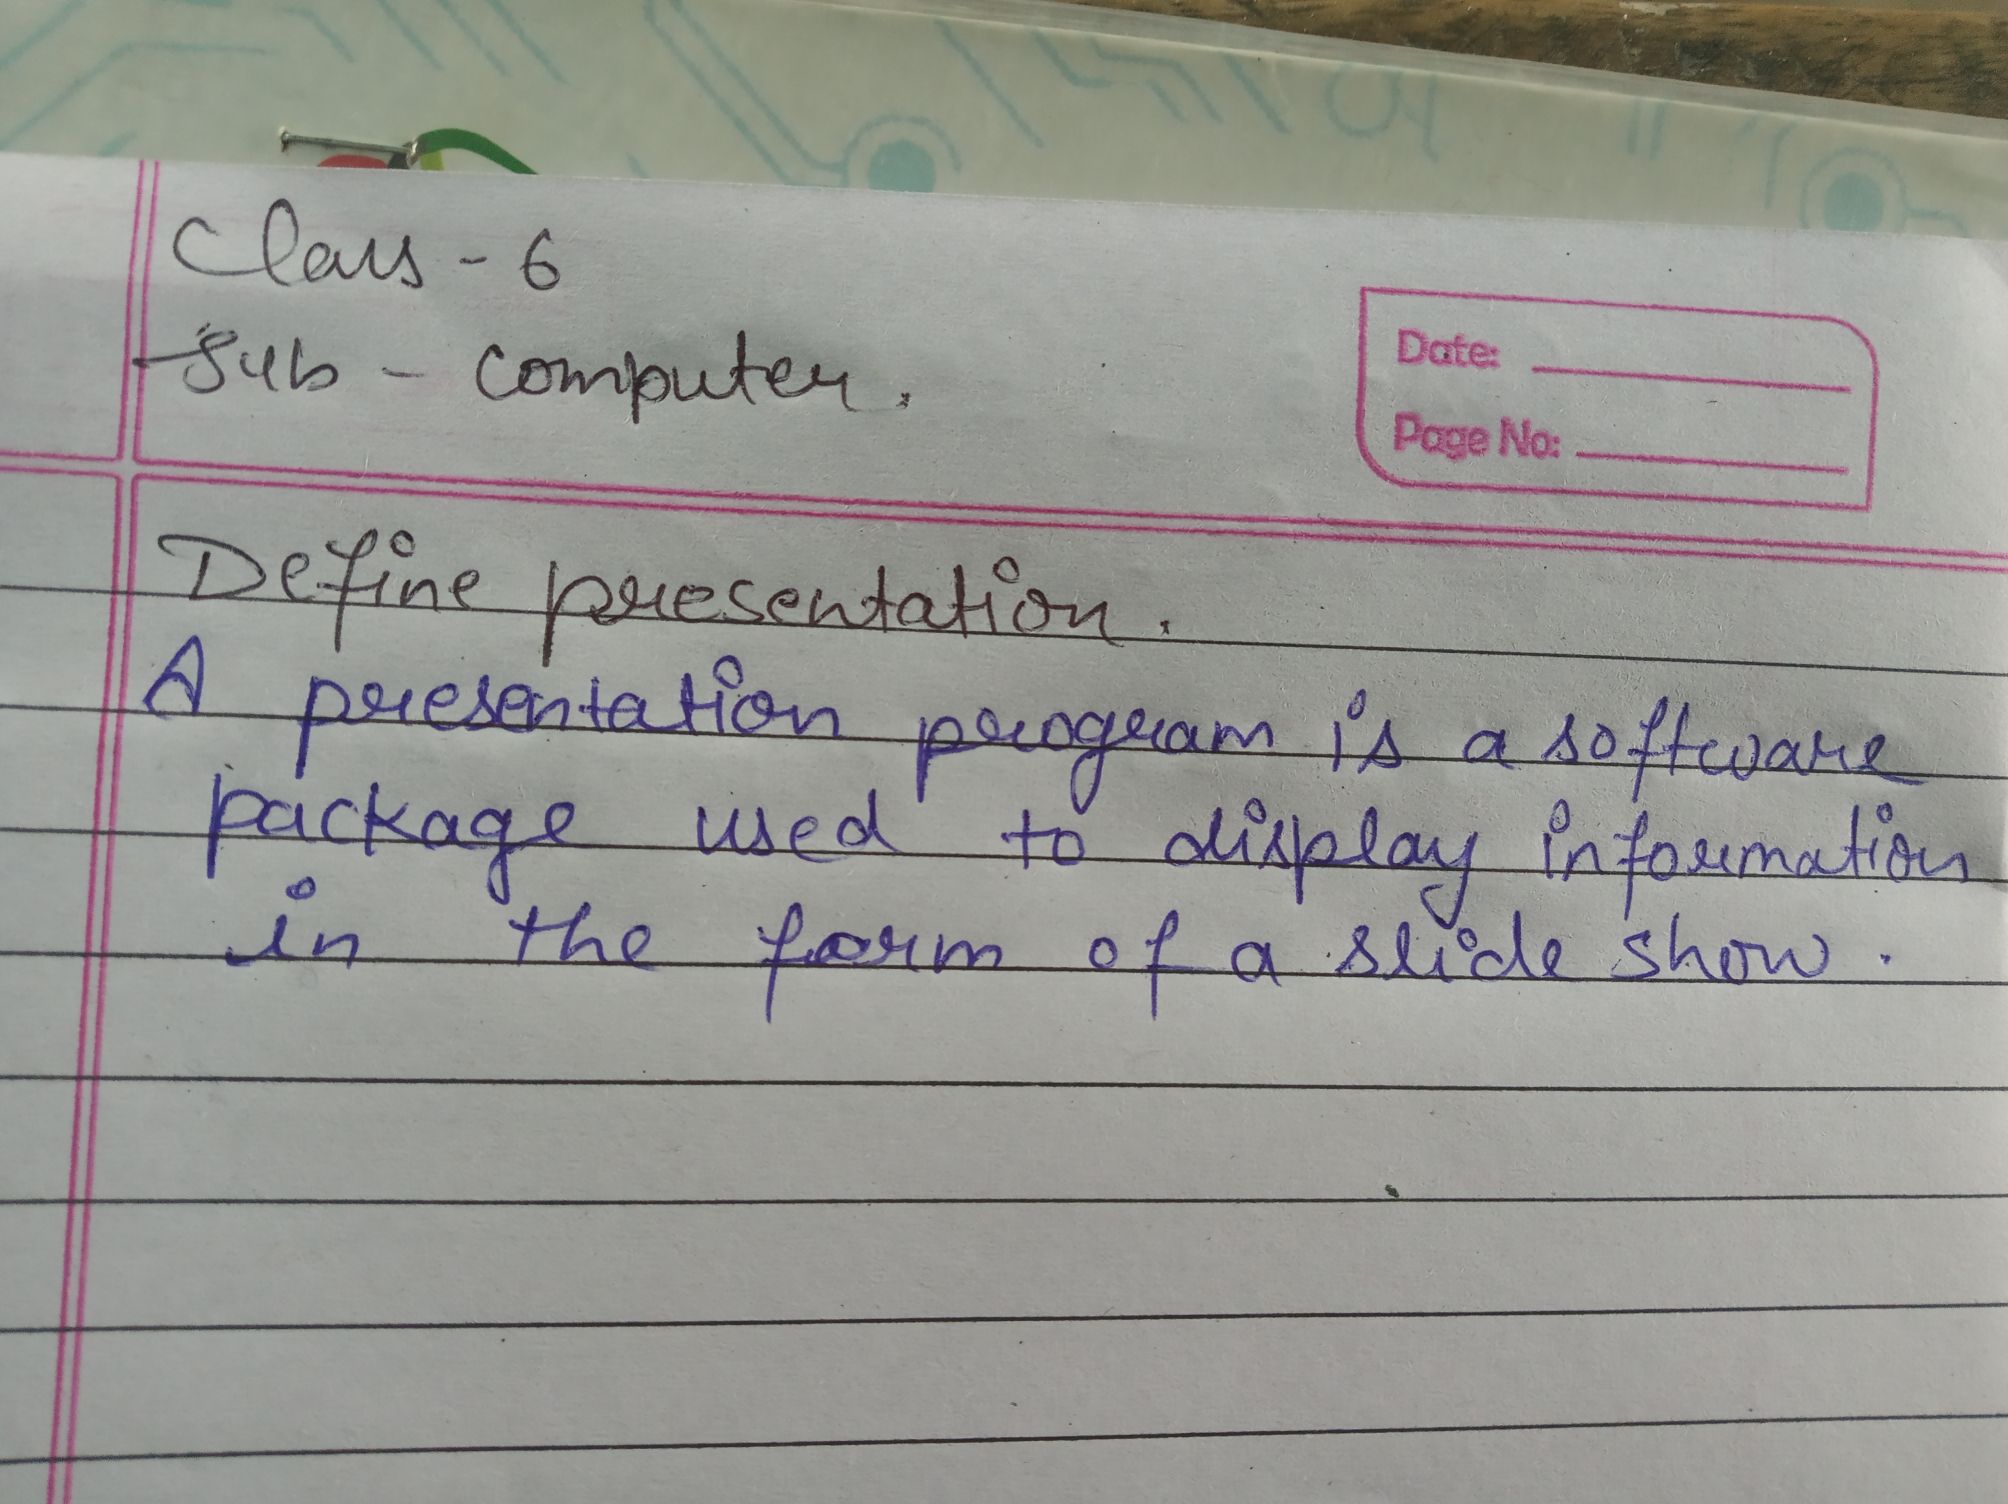 Class - 6
Sub - computer.
Date:
Page No:
Define presentation.
A presentation program is a software
package used to display information
in the form of a slide show.